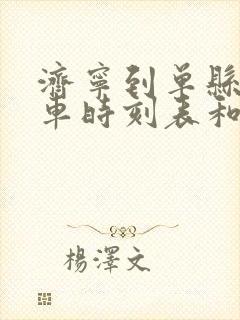 濟寧到單縣
車時刻表和
楊澤文